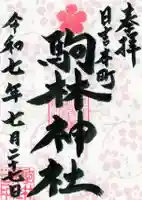 奉拝
日吉本町
駒林神社
令和七年七月二十七日